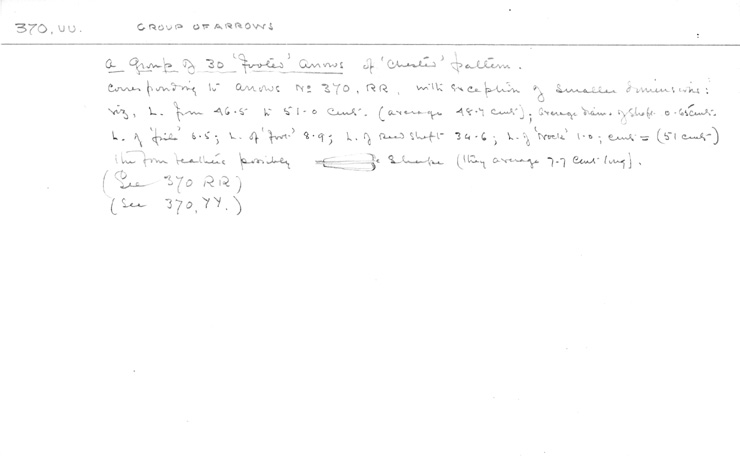 370, UU. GROUP OF ARROWS
A Group of 30 'Footed' arrows of 'Chested' pattern.
Corresponding to arrows No 370, RR, with exception of smaller dimensions:
viz, L. from 46.5 to 51.0 cents. (average 48.7 cents); average diam. of shaft 0.65 cents.
L. of 'pile' 6.5; L. of 'foot' 8.9; L. of Reed shaft 34.6; L. of 'nock' 1.0; cents = (51 cents)
The four feathers possibly shape (they average 7.7 cent long).
(See 370 RR)
(See 370, YY.)